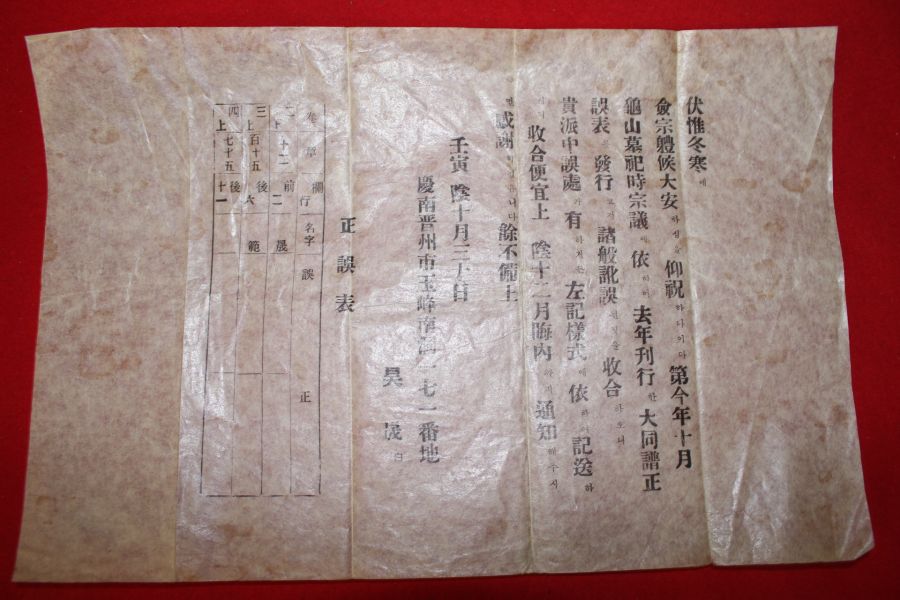 伏惟冬寒에
僉宗軆候大安하심을 仰祝하나이다 第今年十月
龜山墓祀時宗議에 依하여 去年刊行한 大同譜正
誤表를 發行코저 諸般訛誤된것을 收合하오니
貴派中誤處가 有하거든 左記樣式에 依하여 記送하
收合便宜上 陰十二月晦內 通知해주시
면 感謝 餘不備上
壬寅 陰十月二十 日
慶南晋州市玉峰南洞一七一番地
晟 白
正誤表
卷 章 欄 行 名字 誤 正
二下 十二 前二 晟
三上 百十五 後六 範
四上 七十五 後十一